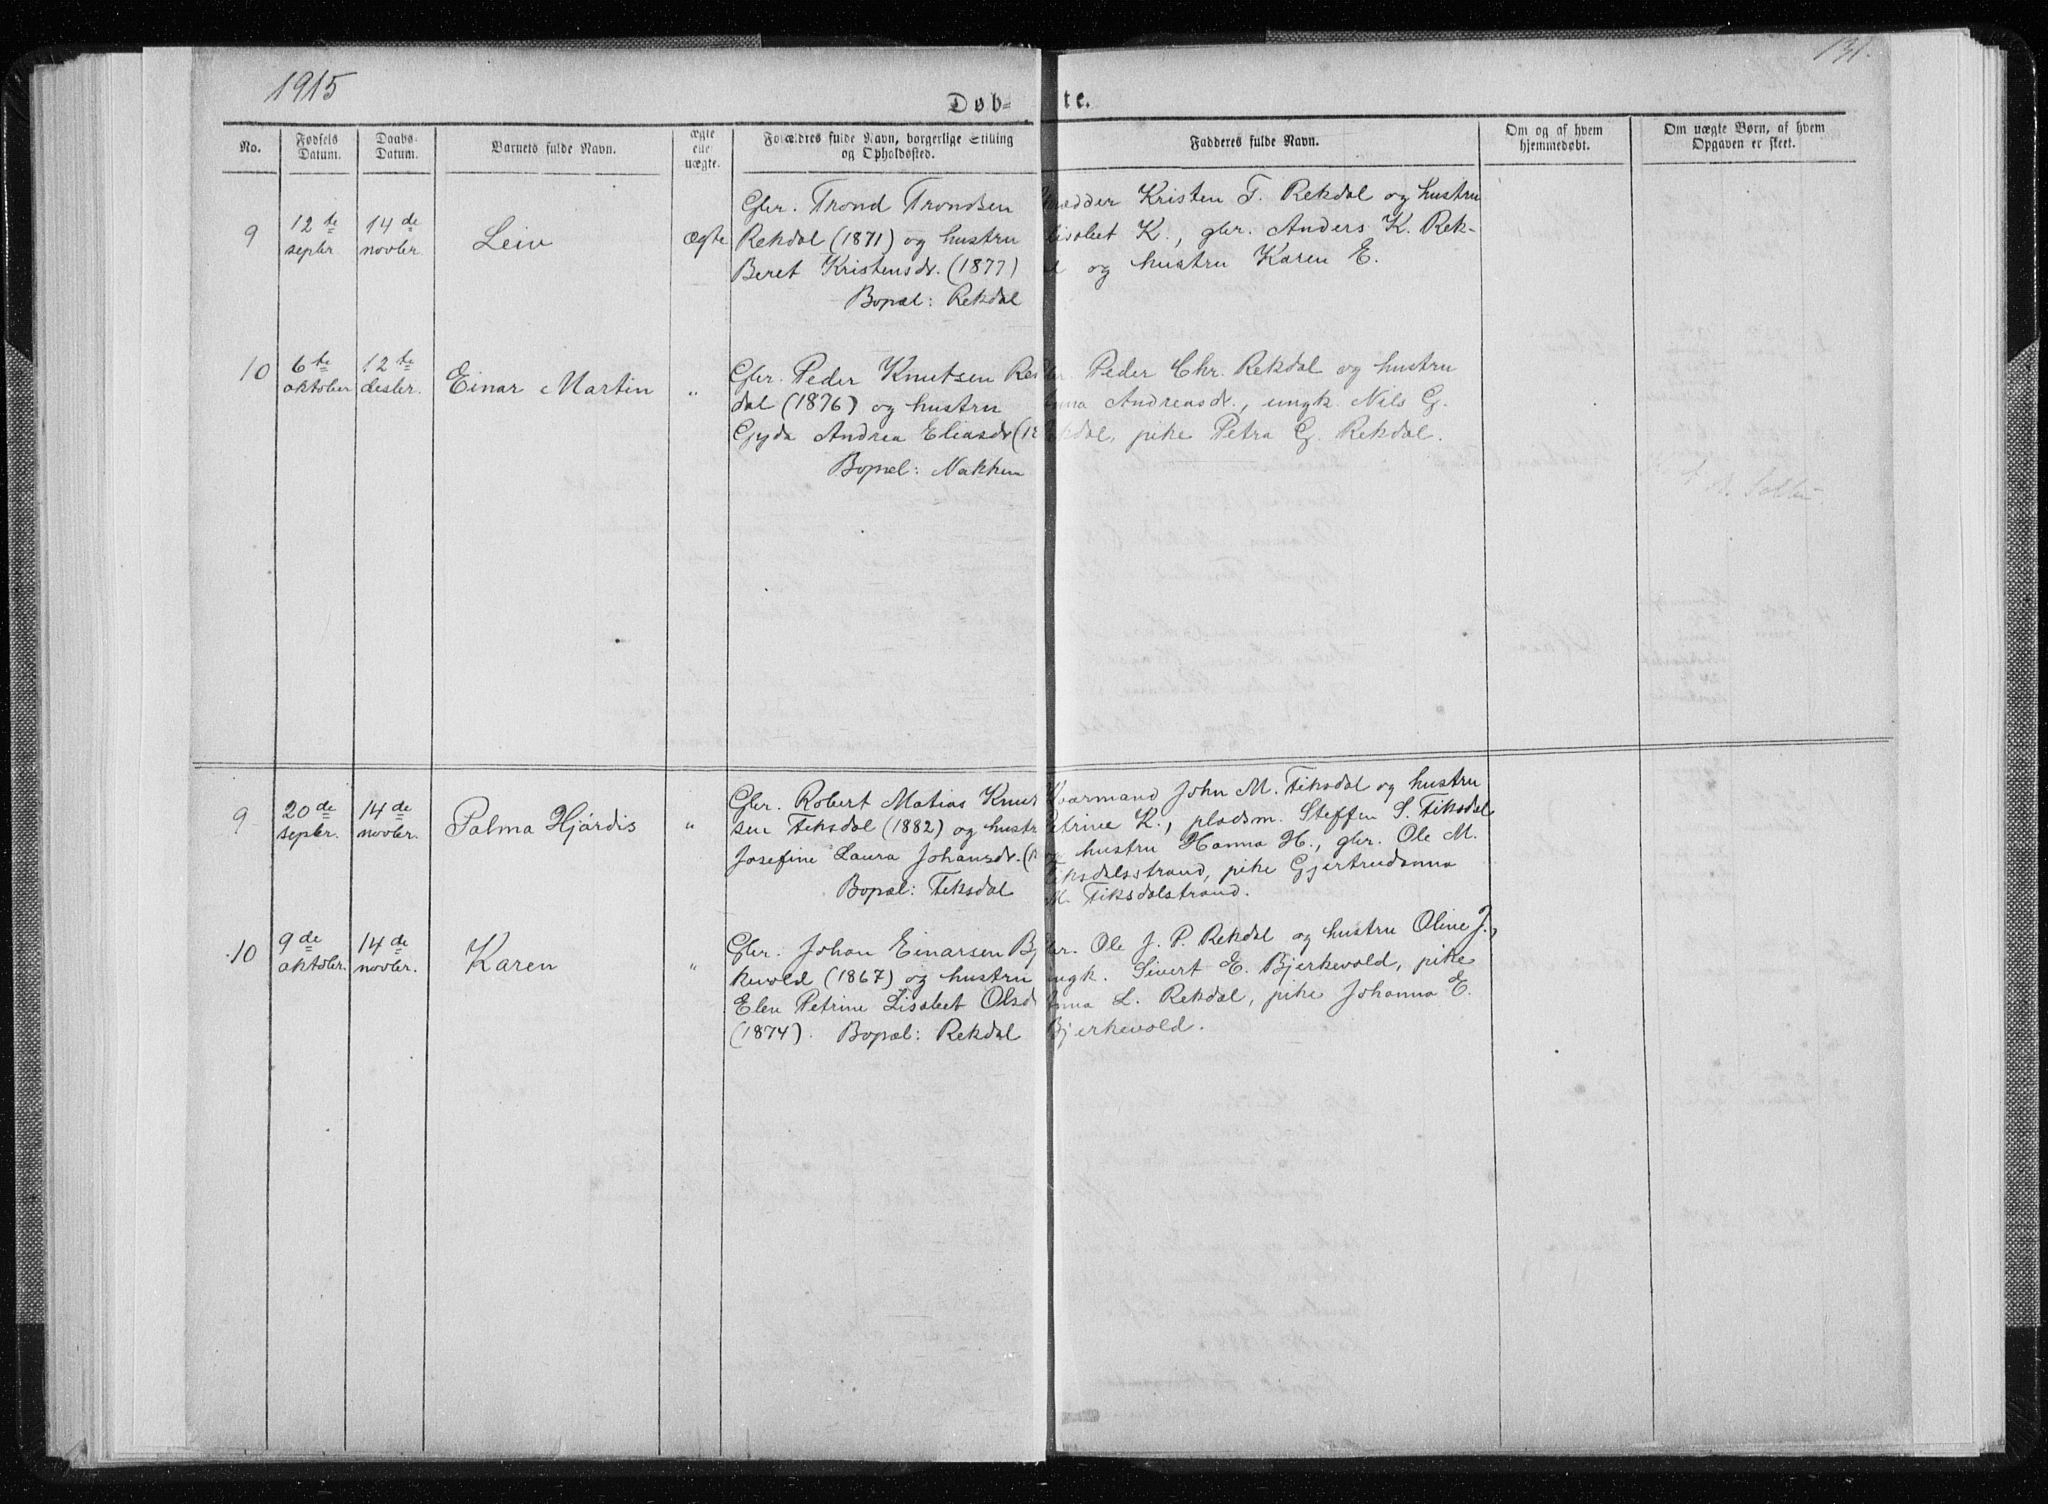 1915
131.
Døb- te.
No.
Fødsels Datum.
Daabs-Datum.
Barnets fulde Navn.
ægte eller uægte.
Forældres fulde Navn, borgerlige Stilling og Opholdssted.
Fadderes fulde Navn.
Om og af hvem hjemmedøbt.
Om uægte Børn, af hvem Opgaven er skeet.
9
12te septbr.
14de novbr.
Leiv
ægte
Gbr. Trond Trondsen
Rekdal (1871) og hustru
Beret Kristensdr. (1877)
Bopæl: Rekdal
Kristen T. Rekdal og hustru
K., gbr. Anders K. Rek-
og hustru Karen E.
10
6te oktober
12te desbr.
Einar Martin
"
Gbr. Peder Knutsen Re
dal (1876) og hustru
Gyda Andrea Eliasdr (18
Bopæl: Nakken
Peder Chr. Rekdal og hustru
Andreasdr., ungk. Nils G.
kdal, pike Petra G. Rekdal.
9
20de septbr.
14de novbr.
Palma Hjördis
"
Gbr. Robert Matias Knut
sen Tiksdal (1882) og hustr
Josefine Laura Johansdr. (1
Bopæl: Tiksdal
Kaarmand John M. Tiksdal og hustru
Petrine K., pladsm. Steffen S. Tiksdal
og hustru Hanna H., gbr. Ole M.
Tiksdalsstrand, pike Gjertrudanna
M. Tiksdalstrand.
10
9de oktober.
14de novbr.
Karen
"
Gbr. Johan Einarsen Bj
kevold (1867) og hustru
Elen Petrine Lisabet Olsd
(1874). Bopæl: Rekdal
br. Ole J. P. Rekdal og hustru Oline J.,
ungk. Sivert E. Bjerkevold, pike
Anna L. Rekdal, pike Johanna E.
Bjerkevold.